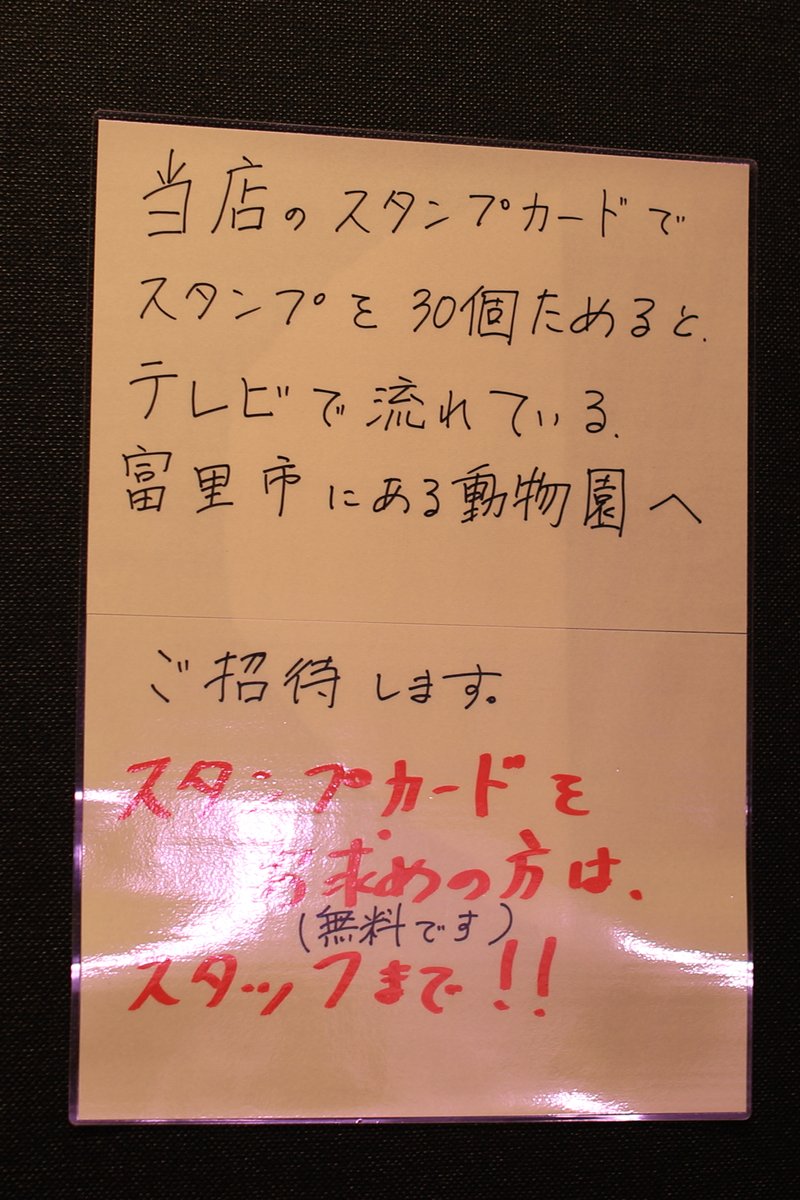 当店のスタンプカードで
スタンプを30個ためると、
テレビで流れている、
富里市にある動物園へ
ご招待します。
スタンプカードを
お求めの方は、
(無料です)
スタッフまで!!